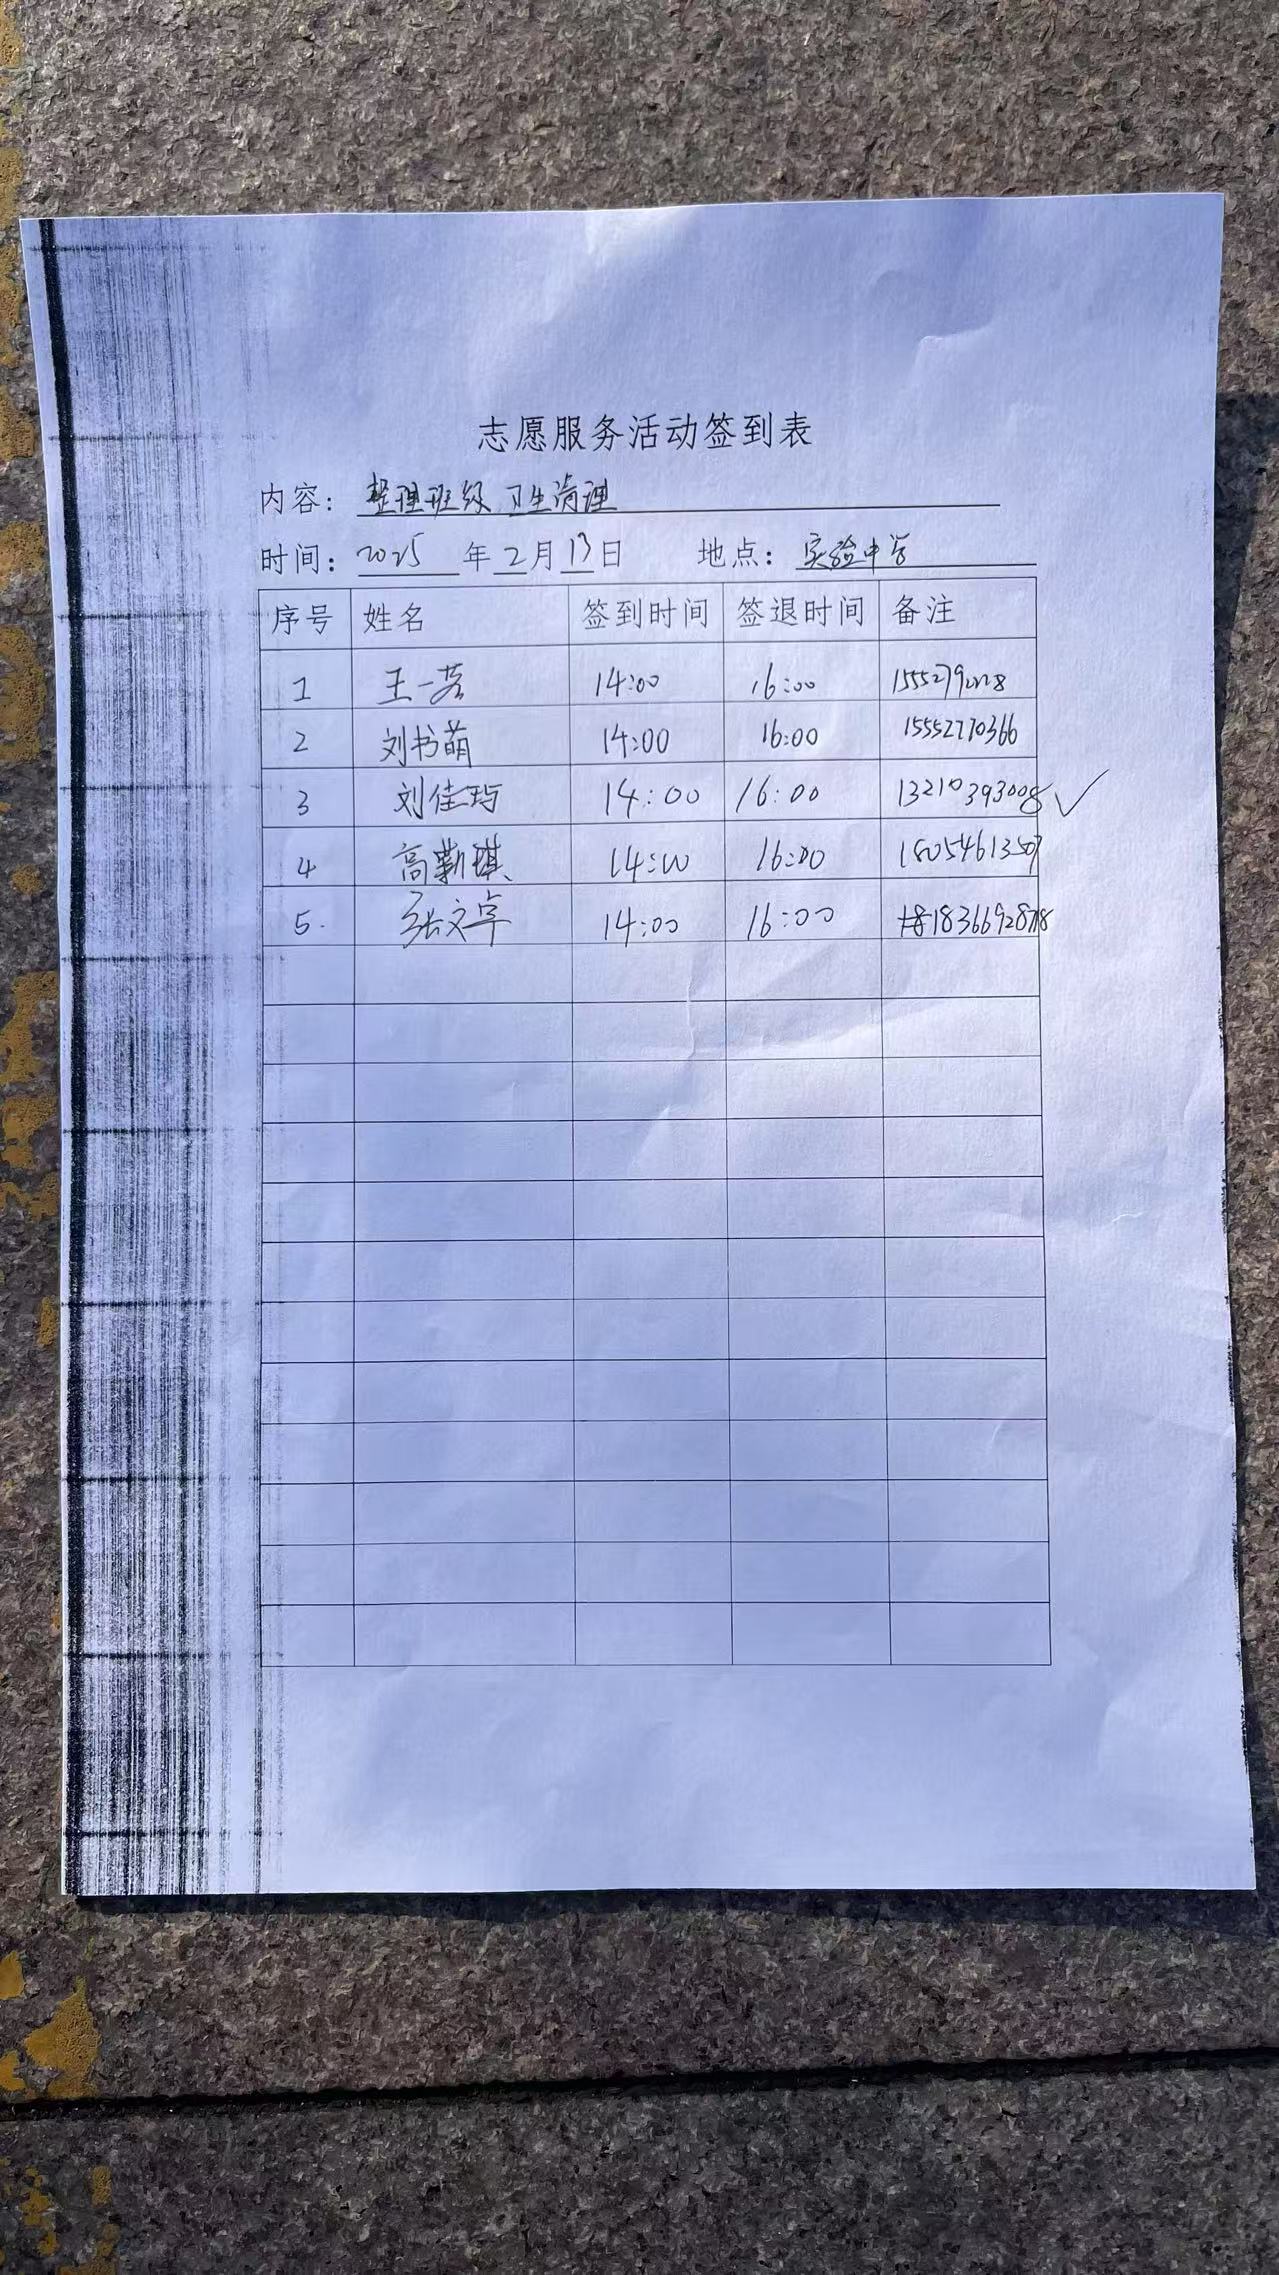 志愿服务活动签到表
内容：整理班级 卫生清理
时间：2025 年 2 月 13 日 地点：实验中学
序号 姓名 签到时间 签退时间 备注
1 王一茗 14:00 16:00
2 刘书萌 14:00 16:00 15552770366
3 刘佳 14:00 16:00 13210393008 ✓
4 高 琪 14:00 16:00
5. 张文卓 14:00 16:00